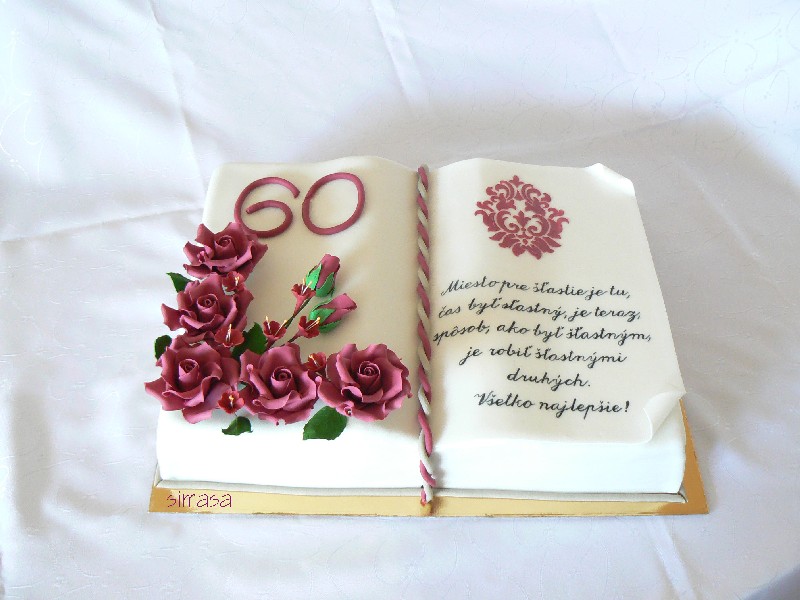 60
Miesto pre šťastie je tu,
čas byť sťastný, je teraz,
spôsob, ako byť šťastným,
je robiť šťastnými
druhých.
Všetko najlepšie!
sirrasa